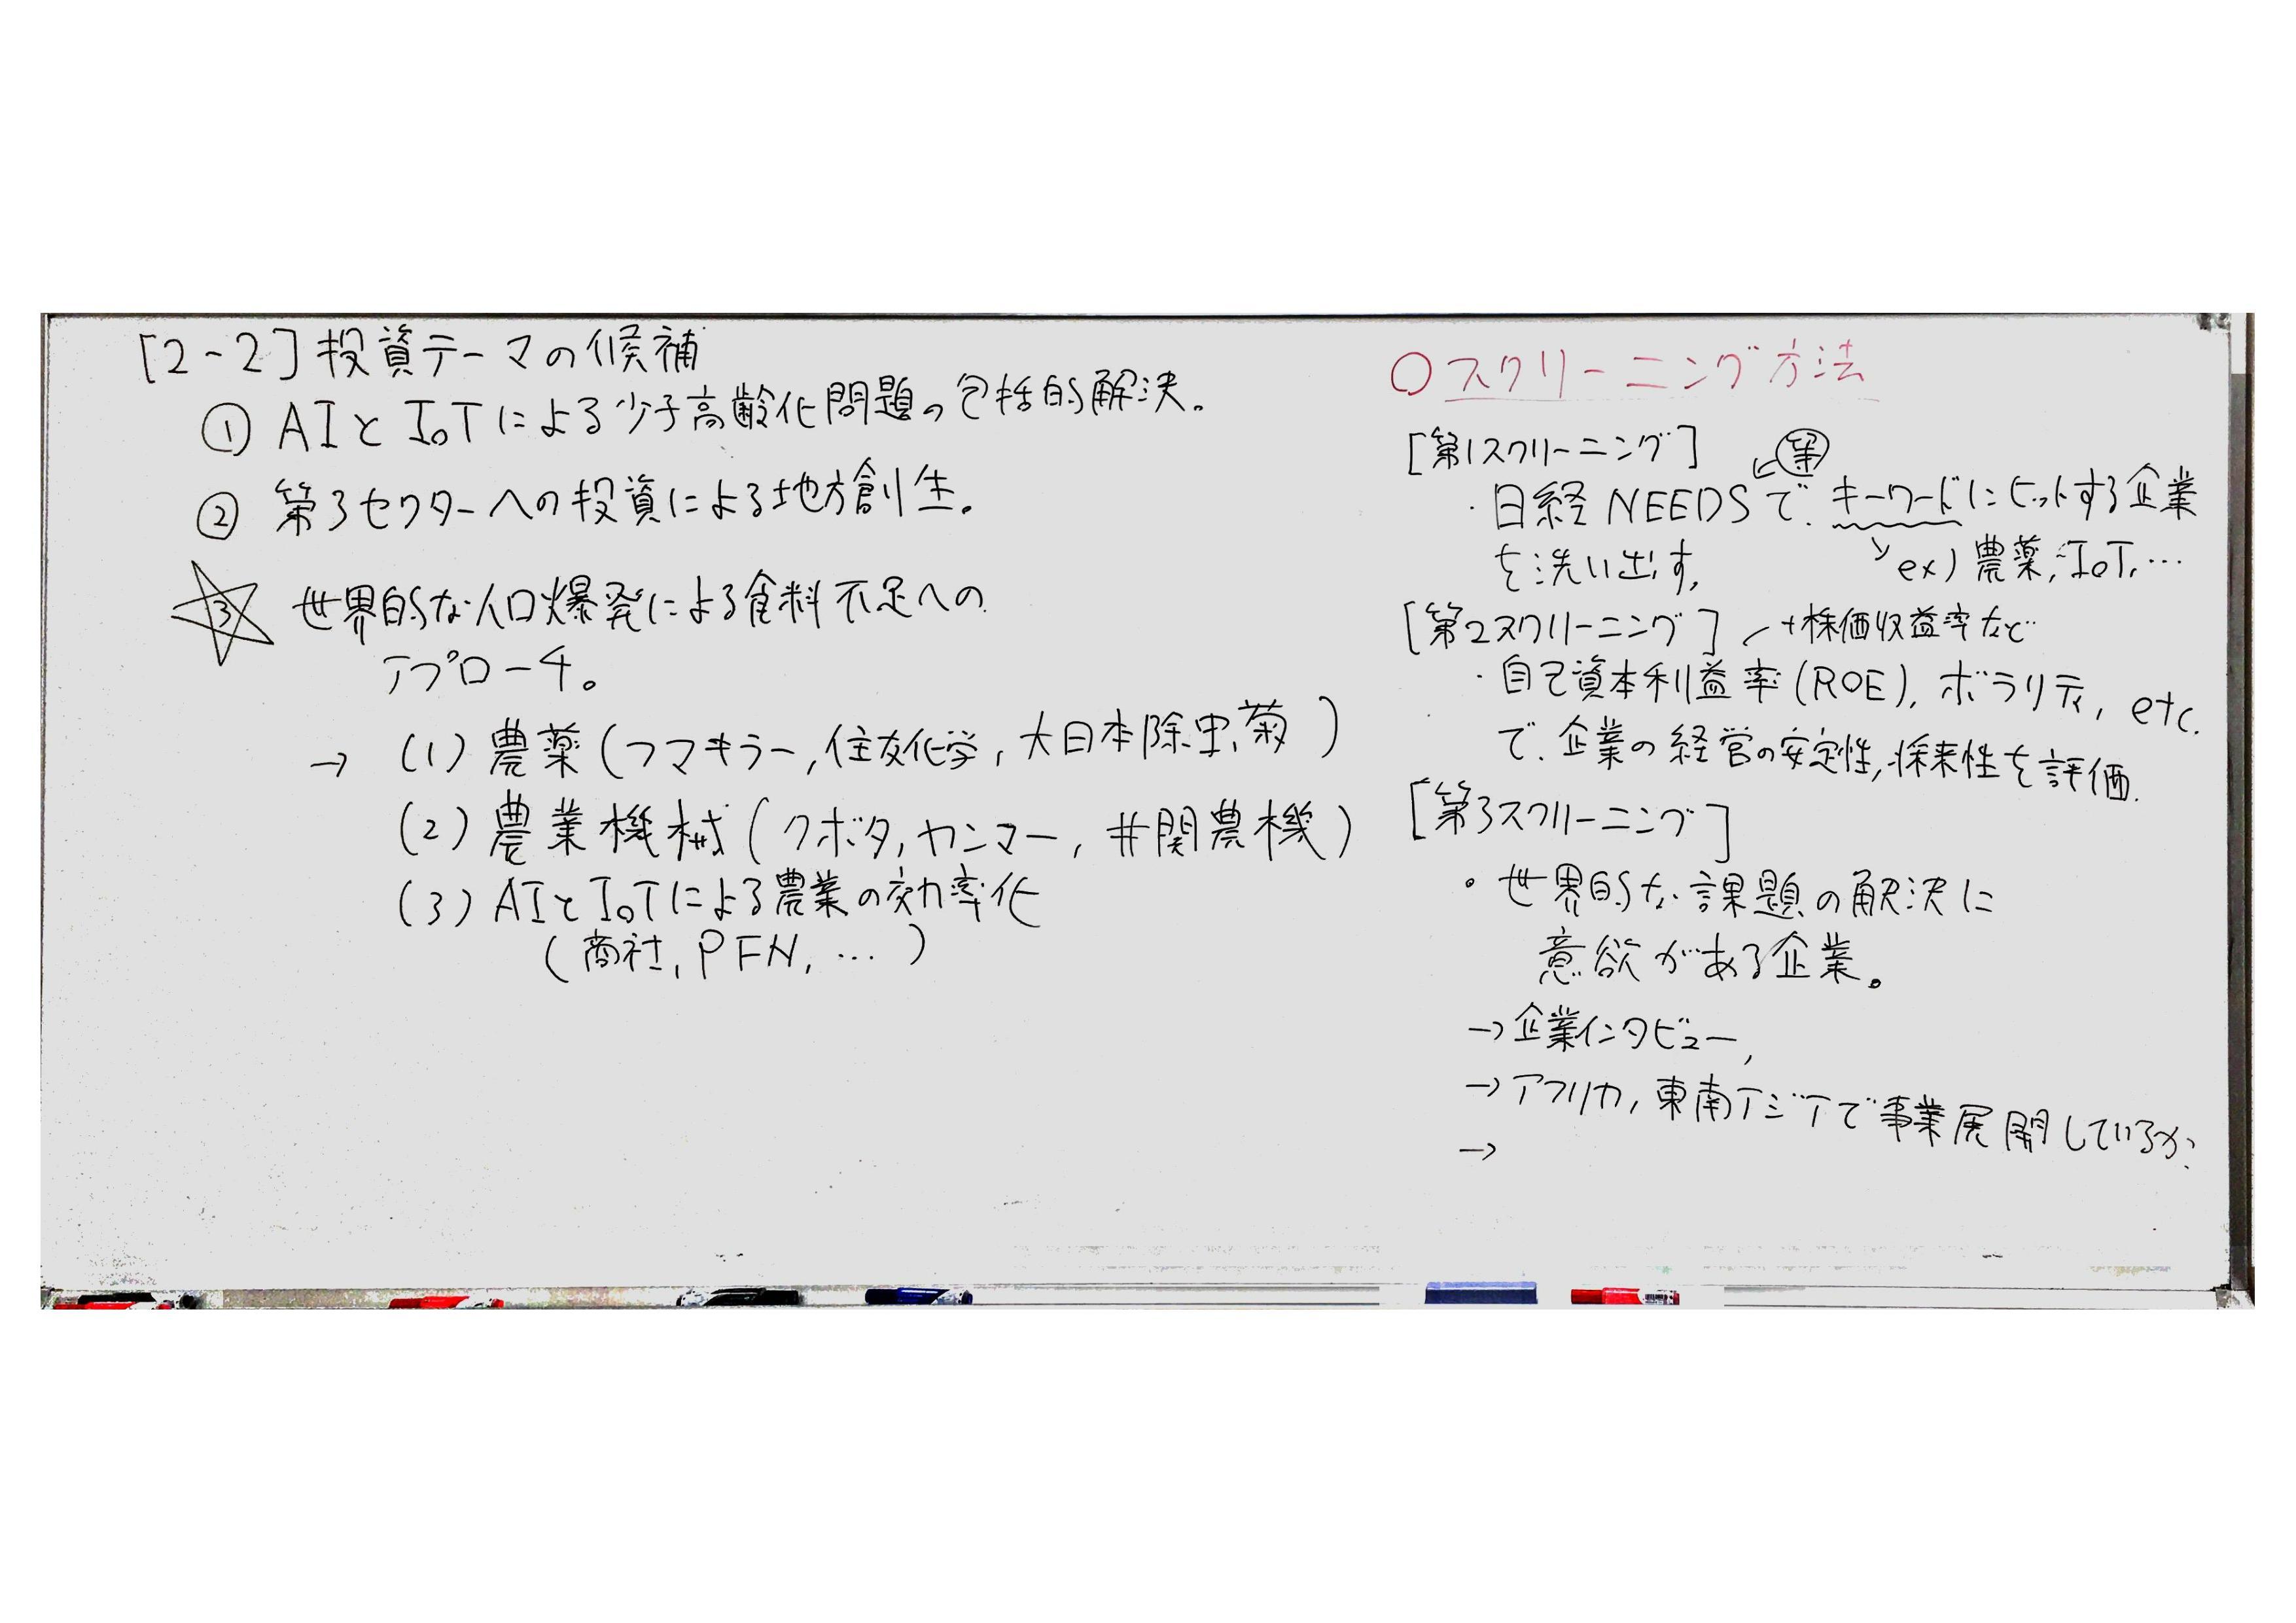 [2-2]投資テーマの候補
① AIとIoTによる少子高齢化問題の包括的解決。
② 第3セクターへの投資による地方創生。
③ 世界的な人口爆発による食料不足への
アプローチ。
→ (1) 農薬(フマキラー,住友化学,大日本除虫菊)
(2) 農業機械(クボタ,ヤンマー,井関農機)
(3) AIとIoTによる農業の効率化
(商社, PFN, …)
○スクリーニング方法
[第1スクリーニング]
・日経NEEDSで、キーワードにヒットする企業
を洗い出す。
ex) 農薬, IoT, …
[第2スクリーニング]
+株価収益率など
・自己資本利益率(ROE), ボラリティ, etc.
で、企業の経営の安定性,将来性を評価.
[第3スクリーニング]
・世界的な課題の解決に
意欲がある企業。
→企業インタビュー,
→アフリカ, 東南アジアで事業展開しているか?
→